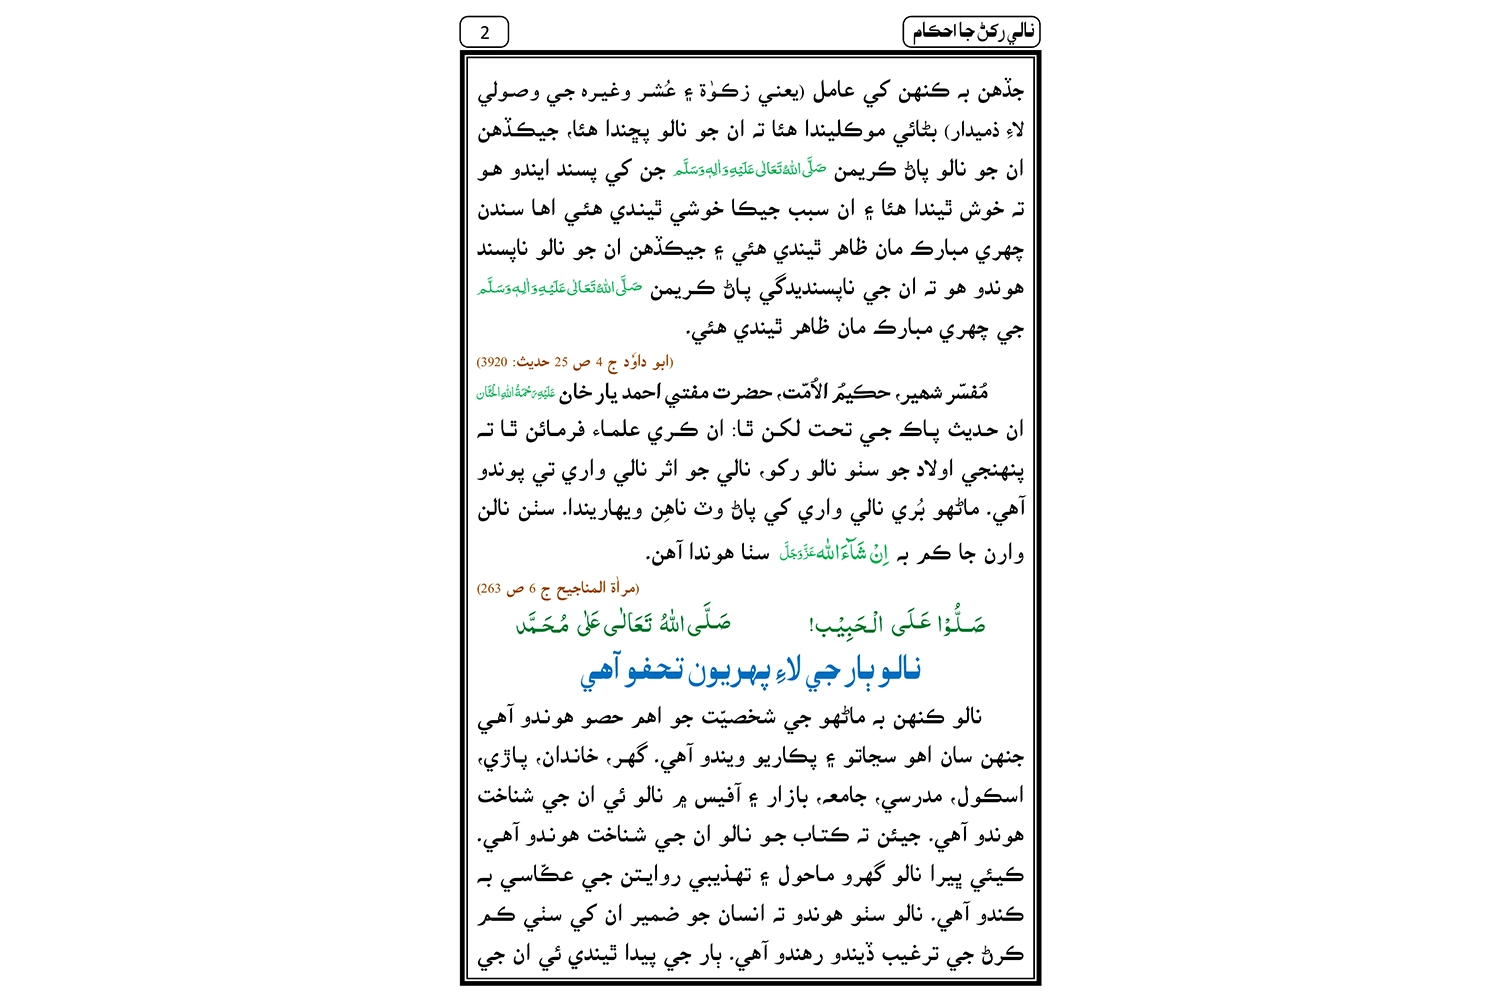 نالي رکڻ جا احڪام
2
جڏهن به ڪنهن کي عامل (يعني زڪوٰة ۽ عُشر وغيره جي وصولي
لاءِ ذميدار) بڻائي موڪليندا هئا ته ان جو نالو پڇندا هئا، جيڪڏهن
ان جو نالو پاڻ ڪريمن صَلَّى اللهُ تَعَالٰى عَلَيْهِ وَاٰلِهٖ وَسَلَّم جن کي پسند ايندو هو
ته خوش ٿيندا هئا ۽ ان سبب جيڪا خوشي ٿيندي هئي اها سندن
چهري مبارڪ مان ظاهر ٿيندي هئي ۽ جيڪڏهن ان جو نالو ناپسند
هوندو هو ته ان جي ناپسنديدگي پاڻ ڪريمن صَلَّى اللهُ تَعَالٰى عَلَيْهِ وَاٰلِهٖ وَسَلَّم
جي چهري مبارڪ مان ظاهر ٿيندي هئي.
(ابو داوٗد ج 4 ص 25 حديث: 3920)
مُفسّر شهير، حڪيمُ الاُمّت، حضرت مفتي احمد يار خان عَلَيْهِ رَحْمَةُ اللهِ الْحَنَّان
ان حديث پاڪ جي تحت لکن ٿا: ان ڪري علماء فرمائن ٿا ته
پنهنجي اولاد جو سٺو نالو رکو، نالي جو اثر نالي واري تي پوندو
آهي. ماڻهو بُري نالي واري کي پاڻ وٽ ناهِن ويهاريندا. سٺن نالن
وارن جا ڪم به اِنْ شَآءَ اللّٰه عَزَّوَجَلَّ سٺا هوندا آهن.
(مراٰة المناجيح ج 6 ص 263)
صَلُّوْا عَلَى الْحَبِيْب! صَلَّى اللهُ تَعَالٰى عَلٰى مُحَمَّد
نالو ٻار جي لاءِ پهريون تحفو آهي
نالو ڪنهن به ماڻهو جي شخصيّت جو اهم حصو هوندو آهي
جنهن سان اهو سڃاتو ۽ پڪاريو ويندو آهي. گهر، خاندان، پاڙي،
اسڪول، مدرسي، جامعہ، بازار ۽ آفيس ۾ نالو ئي ان جي شناخت
هوندو آهي. جيئن ته ڪتاب جو نالو ان جي شناخت هوندو آهي.
ڪيئي ڀيرا نالو گهرو ماحول ۽ تهذيبي روايتن جي عڪّاسي به
ڪندو آهي. نالو سٺو هوندو ته انسان جو ضمير ان کي سٺي ڪم
ڪرڻ جي ترغيب ڏيندو رهندو آهي. ٻار جي پيدا ٿيندي ئي ان جي